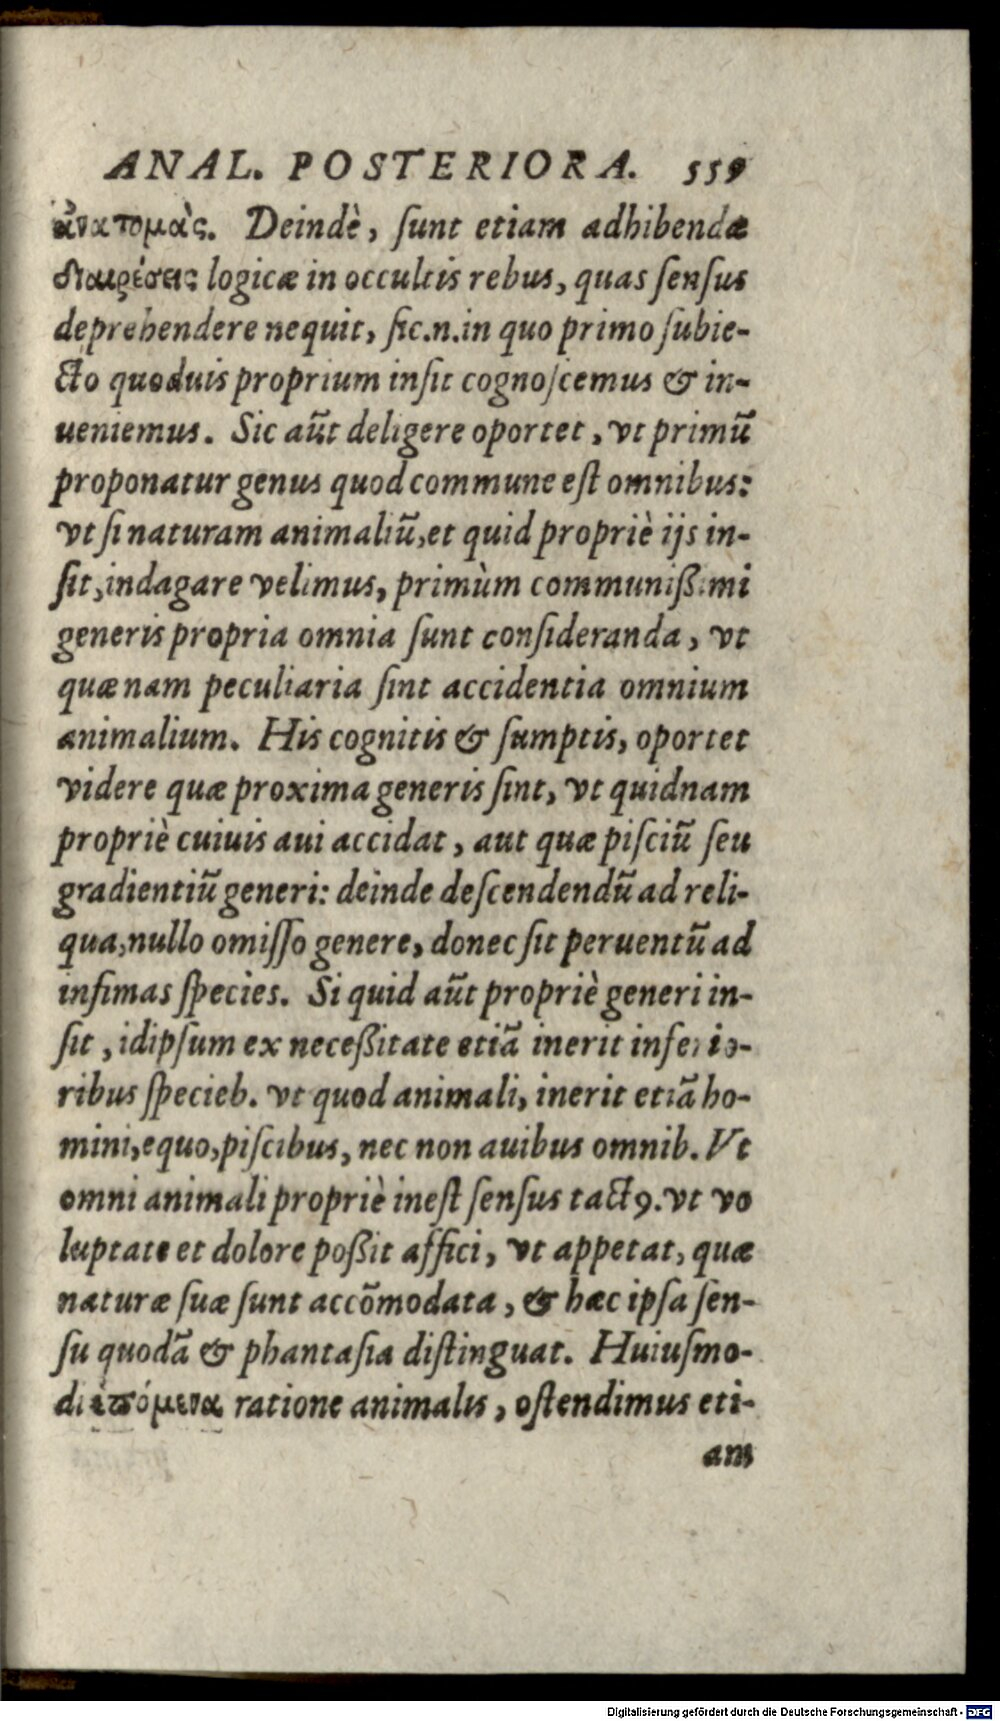 ANAL. POSTERIORA. 559
ἀνατομὰς. Deindè, ſunt etiam adhibendæ
διαιρέσεις logicæ in occultis rebus, quas ſenſus
deprehendere nequit, ſic.n.in quo primo ſubie-
cto quoduis proprium inſit cognoſcemus & in-
ueniemus. Sic aūt deligere oportet, vt primū
proponatur genus quod commune eſt omnibus:
vt ſi naturam animaliū,et quid propriè ijs in-
ſit,indagare velimus, primùm communißimi
generis propria omnia ſunt conſideranda, vt
quænam peculiaria ſint accidentia omnium
animalium. His cognitis & ſumptis, oportet
videre quæ proxima generis ſint, vt quidnam
propriè cuiuis aui accidat, aut quæ piſciū ſeu
gradientiū generi: deinde deſcendendū ad reli-
qua,nullo omiſſo genere, donec ſit peruentū ad
infimas ſpecies. Si quid aūt propriè generi in-
ſit, idipſum ex neceßitate etiā inerit inferio-
ribus ſpecieb. vt quod animali, inerit etiā ho-
mini,equo,piſcibus, nec non auibus omnib. Vt
omni animali propriè ineſt ſenſus tactꝰ. vt vo
luptate et dolore poßit affici, vt appetat, quæ
naturæ ſuæ ſunt accōmodata, & hæc ipſa ſen-
ſu quodā & phantaſia diſtinguat. Huiuſmo-
di ἑπόμενα ratione animalis, oſtendimus eti-
am
Digitalisierung gefördert durch die Deutsche Forschungsgemeinschaft - DFG